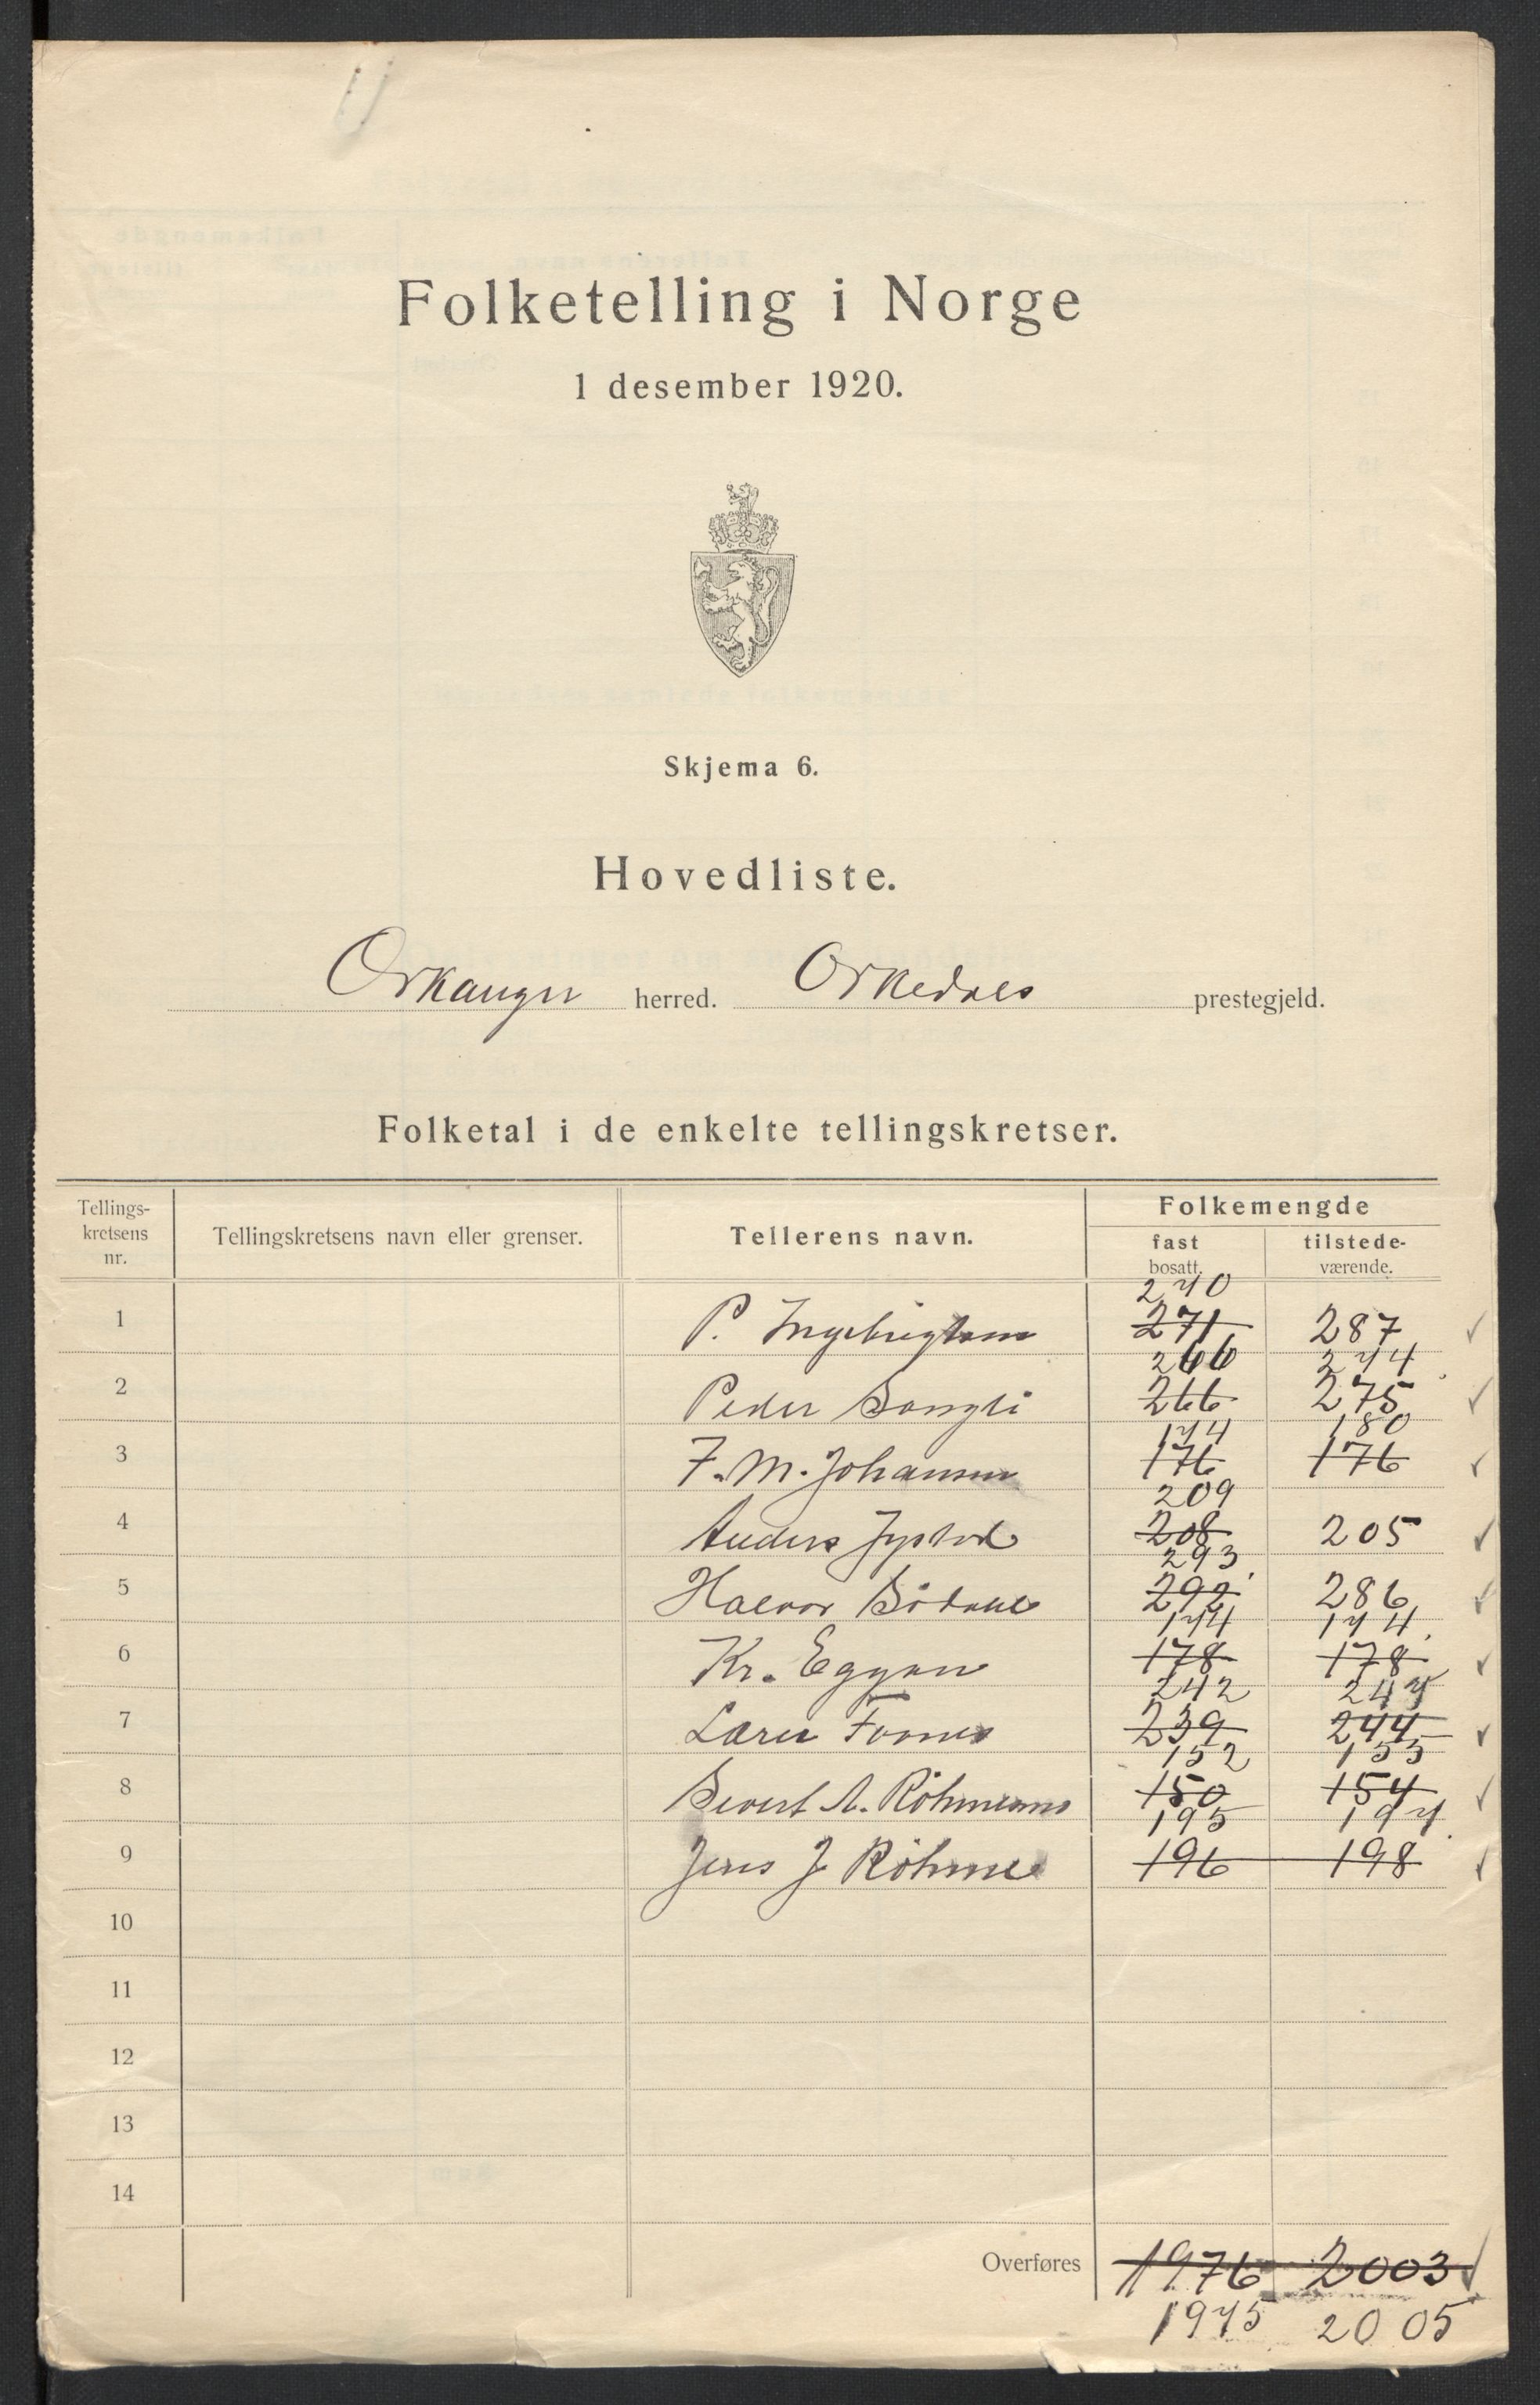 Folketelling i Norge
1 desember 1920.
Skjema 6.
Hovedliste.
Orkanger herred. Orkedals prestegjeld.
Folketal i de enkelte tellingskretser.
Tellings-
kretsens
nr.
Tellingskretsens navn eller grenser.
Tellerens navn.
Folkemengde
fast
bosatt.
tilstede-
værende.
270
1 P. Ingebrigtsen 271 287
266 274
2 Peder Songli 266 275
174 180
3 F. M. Johansen 176 176
209
4 Anders 208 205
293
5 Halvor 292 286
174 174
6 Kr. Eggen 178 178
242 247
7 Lærer 239 244
152 155
8 Sivert A. 150 154
195 197
9 Jens J. 196 198
10
11
12
13
14
Overføres 1976 2003
1975 2005